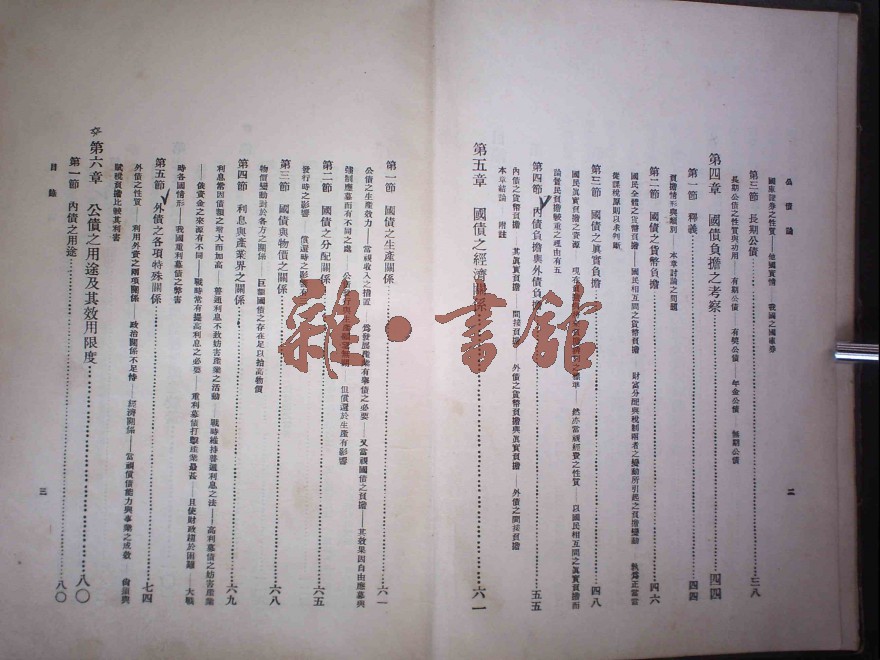 公債論
國庫證券之性質——他國實情——我國之國庫券
第三節 長期公債 三八
長期公債之性質與功用——有期公債——有獎公債——年金公債——無期公債
第四章 國債負擔之考察 四四
第一節 釋義 四四
負擔情形與類別——本章討論之問題
第二節 國債之貨幣負擔 四六
國民全體之貨幣負擔——國民相互間之貨幣負擔——財富分配與稅制兩者之變動所引起之負擔變動——孰為正當當
從課稅原則以求判斷
第三節 國債之真實負擔 四八
國民真實負擔之資源——現在 標準——然亦當視經費之性質——以國民相互間之真實負擔而
論貧民負擔號重之理由有五
第四節 內債負擔與外債負擔 五五
內債之貨幣負擔——其真實負擔——間接負擔——外債之貨幣負擔與真實負擔——外債之間接負擔
本章結論——附註
第五章 國債之經濟關係 六一
二
第一節 國債之生產關係 六一
公債之生產效力——當視收入之措置——為發展產業有舉債之必要——又當視國債之負擔——其效果因自由應募與
強制應募而有不同之處——公 但償還於生產有影響
第二節 國債之分配關係 六五
發行時之影響——償還時之影響
第三節 國債與物價之關係 六八
物價變動對於各方之關係——巨額國債之存在足以抬高物價
第四節 利息與產業界之關係 六九
利息當因債額之增大而加高——普通利息不致妨害產業之活動——戰時維持普通利息之法——高利募債之妨害產業
——債資金之來源有不同——戰時常有提高利息之必要——重利募債打擊產業最甚——且使財政趨於困難——大戰
時各國情形——我國重利募債之弊害
第五節 外債之各項特殊關係 七四
外債之性質——利用外資之兩項關係——政治關係不足恃——經濟關係——當視償債能力與事業之成效——尚須與
賦稅負擔比較其利害
第六章 公債之用途及其效用限度 八〇
第一節 內債之用途 八〇
目錄
三
雜·書館